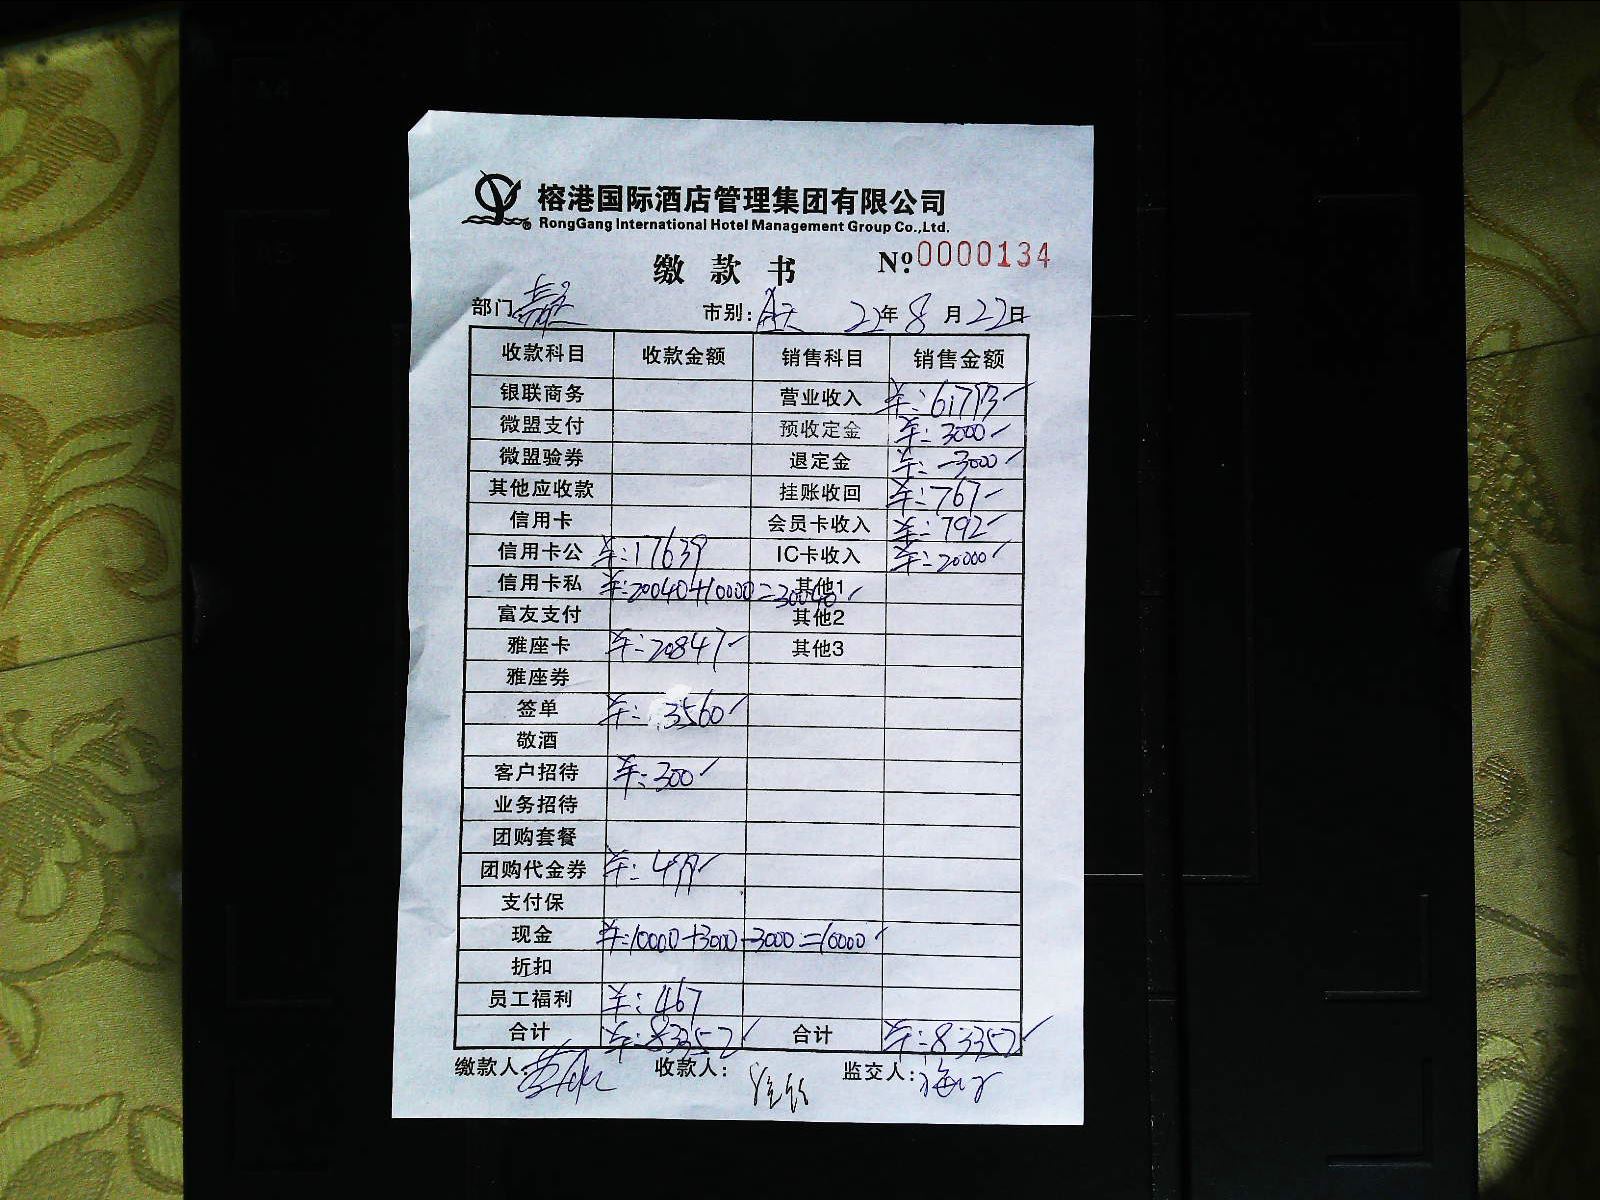 榕港国际酒店管理集团有限公司
RongGang International Hotel Management Group Co.,Ltd.
缴款书 Nº:0000134
部门 市别: 全天 22年8月22日
收款科目 收款金额 销售科目 销售金额
银联商务 营业收入 羊:61793
微盟支付 预收定金 羊:3000
微盟验券 退定金 羊:-3000
其他应收款 挂账收回 羊:767
信用卡 会员卡收入 羊:792
信用卡公 羊:17639 IC卡收入 羊:20000
信用卡私 羊:20040+10000=30040 其他1
富友支付 其他2
雅座卡 羊:20847 其他3
雅座券
签单 羊:3560
敬酒
客户招待 羊:300
业务招待
团购套餐
团购代金券 羊:499
支付保
现金 羊:10000+3000-3000=10000
折扣
员工福利 羊:467
合计 羊:83352 合计 羊:83352
缴款人: 收款人: 监交人: